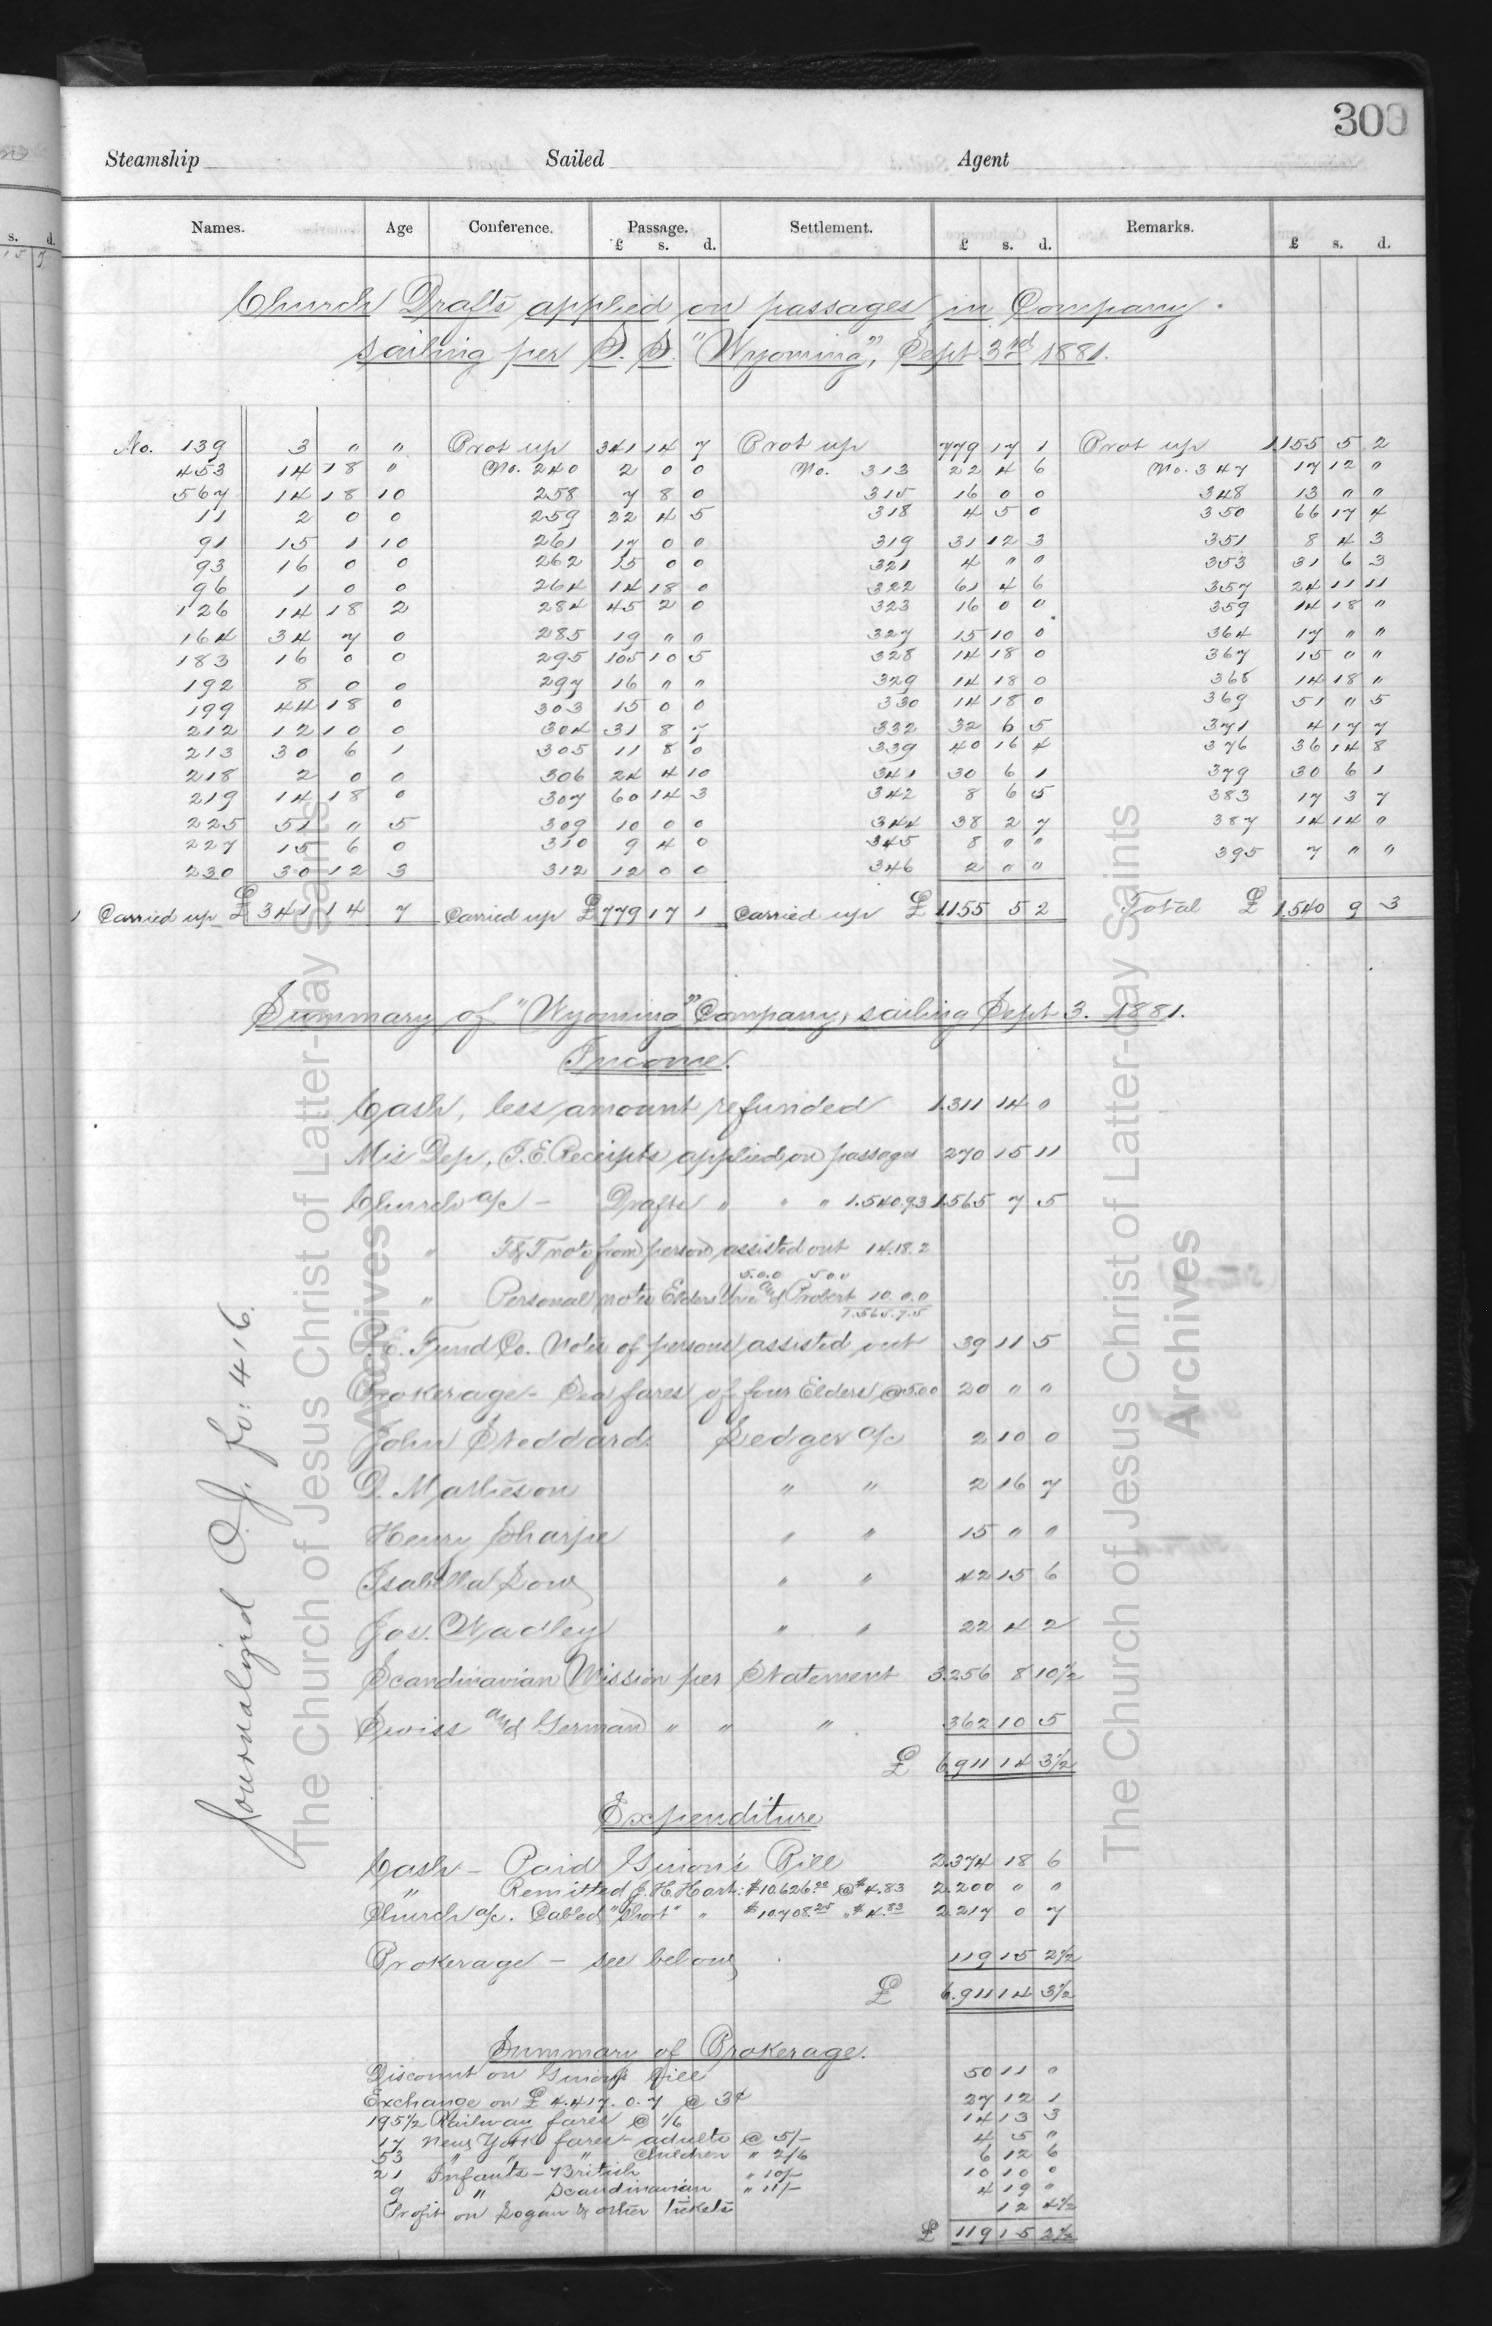 300
Steamship Sailed Agent
Names. Age Conference. Passage. Settlement. Remarks.
s. d. £ s. d. £ s. d. £ s. d.
Church Drafts applied on passages in Company
sailing per S. S. "Wyoming", Sept 3rd 1881.
No. 139 3 " " Brot up 341 14 7 Brot up 779 17 1 Brot up 1155 5 2
453 14 18 " No. 240 2 0 0 No. 313 22 4 6 No. 347 17 12 "
567 14 18 10 258 7 8 0 315 16 0 0 348 13 " "
11 2 0 0 259 22 4 5 318 4 5 0 350 66 17 4
91 15 1 10 261 17 0 0 319 31 12 3 351 8 4 3
93 16 0 0 262 15 0 0 321 4 " " 353 31 6 3
96 1 0 0 264 14 18 0 322 61 4 6 357 24 11 11
126 14 18 2 284 45 2 0 323 16 0 0 359 14 18 "
164 34 7 0 285 19 " " 327 15 10 0 364 17 " "
183 16 0 0 295 105 10 5 328 14 18 0 367 15 0 "
192 8 0 0 297 16 " " 329 14 18 0 368 14 18 "
199 44 18 0 303 15 0 0 330 14 18 0 369 51 " 5
212 12 10 0 304 31 8 7 332 32 6 5 371 4 17 7
213 30 6 1 305 11 8 0 339 40 16 4 376 36 14 8
218 2 0 0 306 24 4 10 341 30 6 1 379 30 6 1
219 14 18 0 307 60 14 3 342 8 6 5 383 17 3 7
225 51 " 5 309 10 0 0 344 38 2 7 387 14 14 0
227 15 6 0 310 9 4 0 345 8 " " 395 7 " "
230 30 12 3 312 12 0 0 346 2 " "
Carried up £ 341 14 7 Carried up £ 779 17 1 Carried up £ 1155 5 2 Total £ 1.540 9 3
Summary of "Wyoming" Company, sailing Sept 3. 1881.
Income.
Cash, less amount refunded 1.311 14 0
Mis Dep, I.E. Receipts applied on passages 270 15 11
Church a/c - Drafts " " " 1.540.9.3 1.565 7 5
" T&T note from person assisted out 14.18.2
5.0.0 5.0.0
" Personal notes Elders Urie and Probert 10.0.0
1.565.7.5
P.E. Fund Co. Notes of persons assisted out 39 11 5
Brokerage - Sea fares of four Elders @ 5.0.0 20 " "
John Stoddard Ledger a/c 2 10 0
D. Mathieson " " 2 16 7
Henry Sharpe " " 15 " "
Isabella Low " " 42 15 6
Jos. Wadley " " 22 4 2
Scandinavian Mission per Statement 3.256 8 10½
Swiss and German " " " 362 10 5
£ 6.911 14 3½
Expenditure
Cash - Paid Guion's Bill 2.374 18 6
" Remitted J. H. Hart: $10.626.00 @ $4.83 2.200 " "
Church a/c. Cabled "Short" " $10.708.25 " $4.83 2.217 0 7
Brokerage - see below 119 15 2½
£ 6.911 14 3½
Summary of Brokerage.
Discount on Guion's Bill 50 11 "
Exchange on £4.417.0.7 @ 3¢ 27 12 1
195½ Railway fares @ 1/6 14 13 3
17 New York fares - adults @ 5/- 4 5 "
53 " " " Children " 2/6 6 12 6
21 Infants - British " 10/- 10 10 0
9 " Scandinavian " 11/- 4 19 "
Profit on Logan & other tickets 12 4½
£ 119 15 2½
Journalized O. J. fo: 416.
The Church of Jesus Christ of Latter-day Saints
Archives
The Church of Jesus Christ of Latter-day Saints
Archives